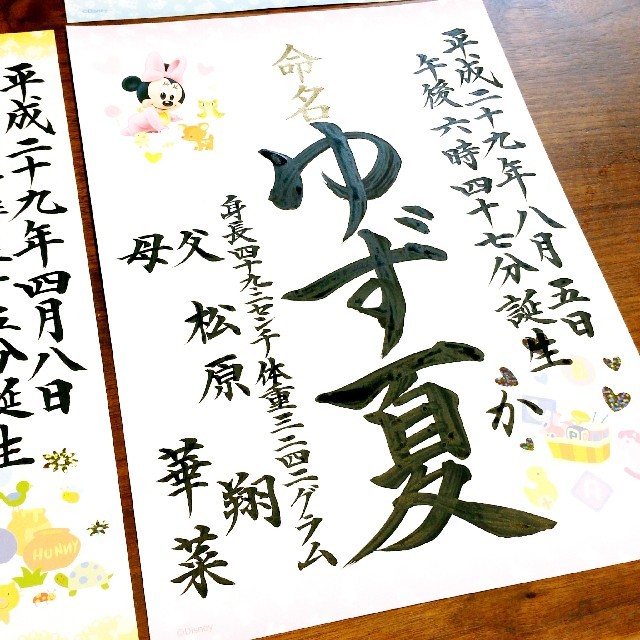 平成二十九年八月五日
午後六時四十七分誕生
か
命名
ゆず夏
身長四十九・二センチ 体重三二四二グラム
父 松原 翔
母 華菜
平成二十九年四月八日
分誕生
HUNNY
©Disney
©Disney